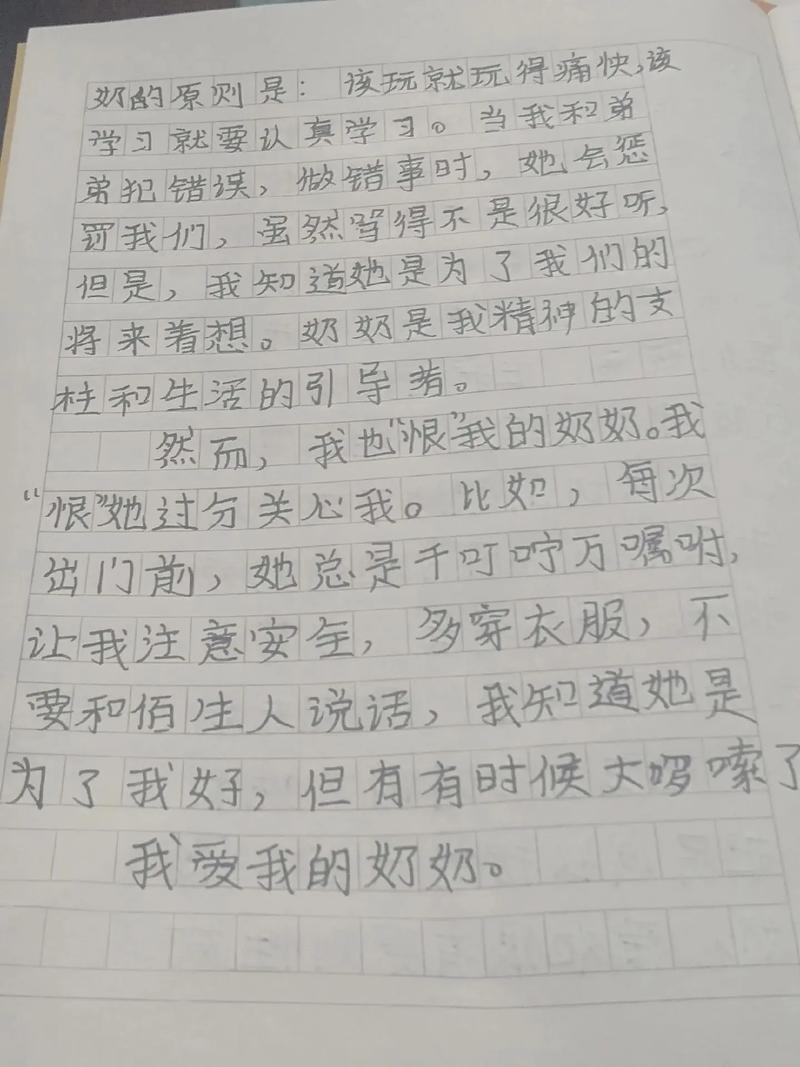 奶的原则是：该玩就玩得痛快，该
学习就要认真学习。当我和弟
弟犯错误，做错事时，她会惩
罚我们，虽然骂得不是很好听，
但是，我知道她是为了我们的
将来着想。奶奶是我精神的支
柱和生活的引导者。
然而，我也“恨”我的奶奶。我
“恨”她过分关心我。比如，每次
出门前，她总是千叮咛万嘱咐，
让我注意安全，多穿衣服，不
要和佰生人说话，我知道她是
为了我好，但有有时候大啰嗦了
我爱我的奶奶。